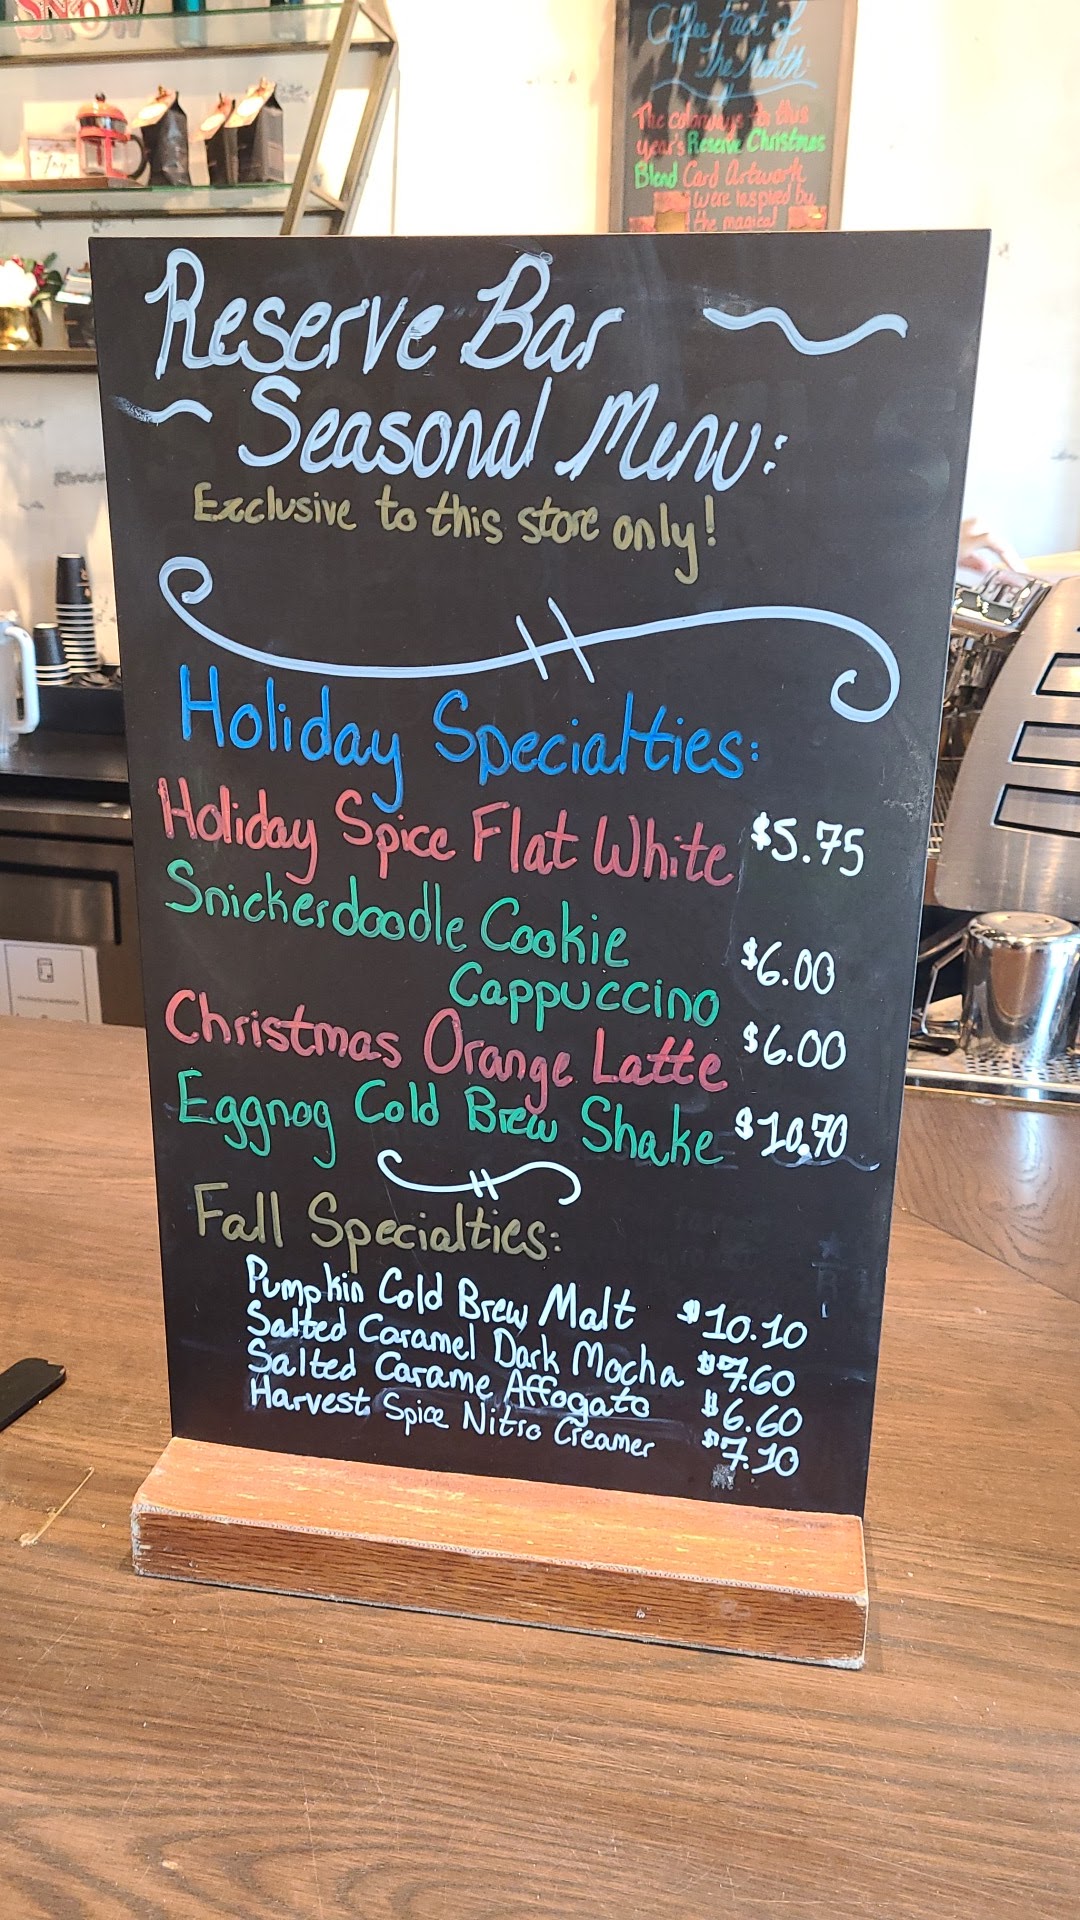 SNOW
Coffee Fact of
The Month
The colorways for this
year's Reserve Christmas
Blend Card Artwork
were inspired by
the magical
Joy
Reserve Bar
Seasonal Menu:
Exclusive to this store only!
Holiday Specialties:
Holiday Spice Flat White $5.75
Snickerdoodle Cookie
Cappuccino $6.00
Christmas Orange Latte $6.00
Eggnog Cold Brew Shake $10.70
Fall Specialties:
Pumpkin Cold Brew Malt $10.10
Salted Caramel Dark Mocha $7.60
Salted Carame Affogato $6.60
Harvest Spice Nitro Creamer $7.10